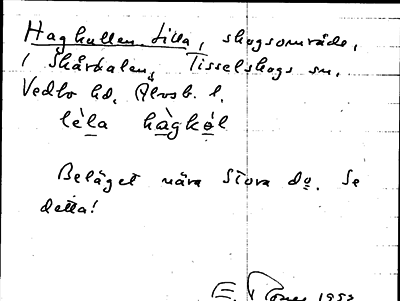 Hagkullen, Lilla, skogsområde,
i Skårdalen, Tisselskogs sn.
Vedbo hd. Älvsb. l.
lèla hàgkòl
Beläget nära Stora do. Se
detta!
E. 1953